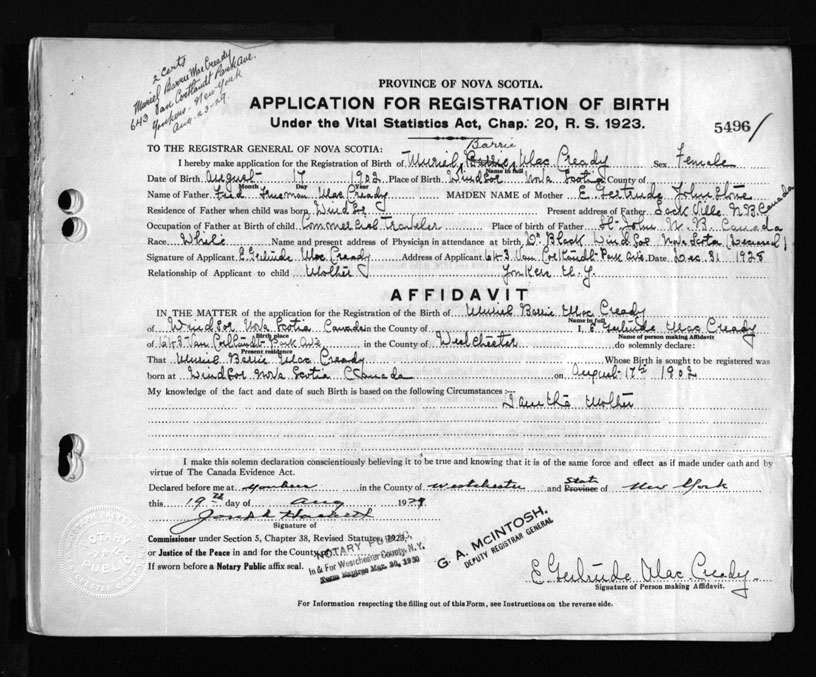 2 Certs
Muriel Barrie Mac Cready
643 Van Cortlandt Park Ave.
Yonkers - New York
Aug-23-29
PROVINCE OF NOVA SCOTIA.
APPLICATION FOR REGISTRATION OF BIRTH
Under the Vital Statistics Act, Chap. 20, R. S. 1923.
5496
TO THE REGISTRAR GENERAL OF NOVA SCOTIA:
Barrie
I hereby make application for the Registration of Birth of Muriel Mac Cready Sex Female
Name in full
Date of Birth August 17 1902 Place of Birth Windsor Nova Scotia County of
Month Day Year
Name of Father Fred Freeman Mac Cready MAIDEN NAME of Mother E. Gertrude Johnstone
Residence of Father when child was born Windsor Present address of Father Sackville N.B. Canada
Occupation of Father at Birth of child Commercial Traveler Place of birth of Father St. John N. B. Canada
Race White Name and present address of Physician in attendance at birth Dr. Black Windsor Nova Scotia (Deceased)
Signature of Applicant E. Gertrude Mac Cready Address of Applicant 643 Van Cortlandt Park Ave. Date Dec. 31 1928
Relationship of Applicant to child Mother Yonkers N. Y.
AFFIDAVIT
IN THE MATTER of the application for the Registration of the Birth of Muriel Barrie Mac Cready
Name in full
of Windsor Nova Scotia Canada in the County of I, E Gertrude Mac Cready
Birth place Name of person making Affidavit
of 643 Van Cortlandt Park Ave in the County of Westchester do solemnly declare:
Present residence
That Muriel Barrie Mac Cready Whose Birth is sought to be registered was
born at Windsor Nova Scotia Canada on August 17th 1902
My knowledge of the fact and date of such Birth is based on the following Circumstances :—
I am the Mother
I make this solemn declaration conscientiously believing it to be true and knowing that it is of the same force and effect as if made under oath and by
virtue of The Canada Evidence Act.
State
Declared before me at Yonkers in the County of Westchester and Province of New York
this 19th day of Aug 1929
Joseph
Signature of
Commissioner under Section 5, Chapter 38, Revised Statutes, 1923,
or Justice of the Peace in and for the County of
If sworn before a Notary Public affix seal.
NOTARY PUBLIC
In & For Westchester County, N.Y.
Term Expires Mar. 30, 1930
G. A. MCINTOSH.
DEPUTY REGISTRAR GENERAL
E Gertrude Mac Cready.
Signature of Person making Affidavit.
For Information respecting the filling out of this Form, see Instructions on the reverse side.
NOTARY
PUBLIC